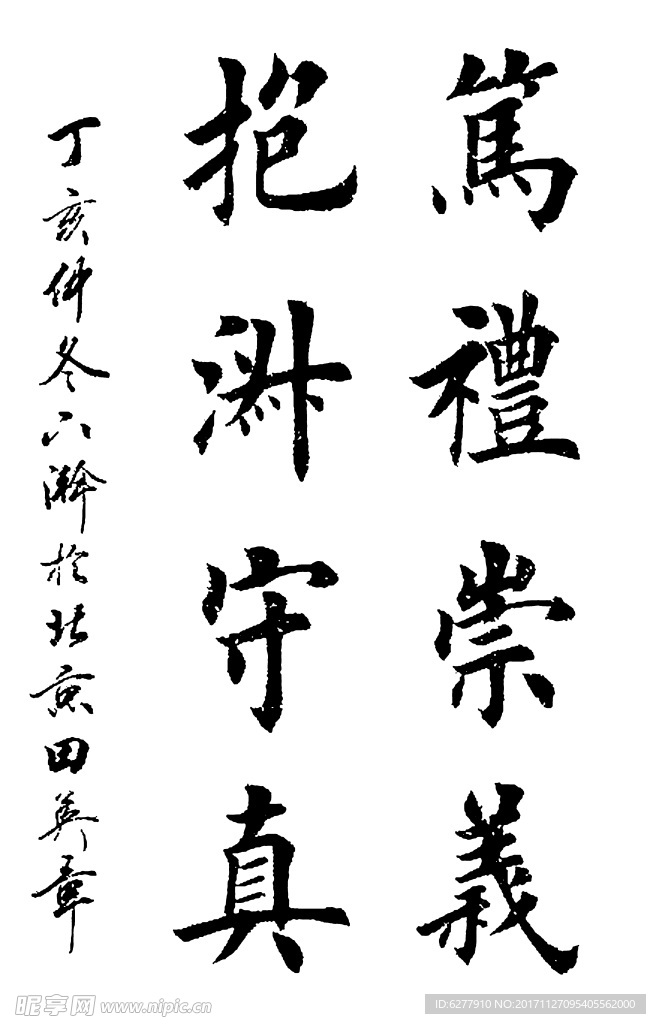 篤禮崇義
抱淑守真
丁亥仲冬下澣於北京田英章
昵享网 www.nipic.cn
ID:6277910 NO:20171127095405562000